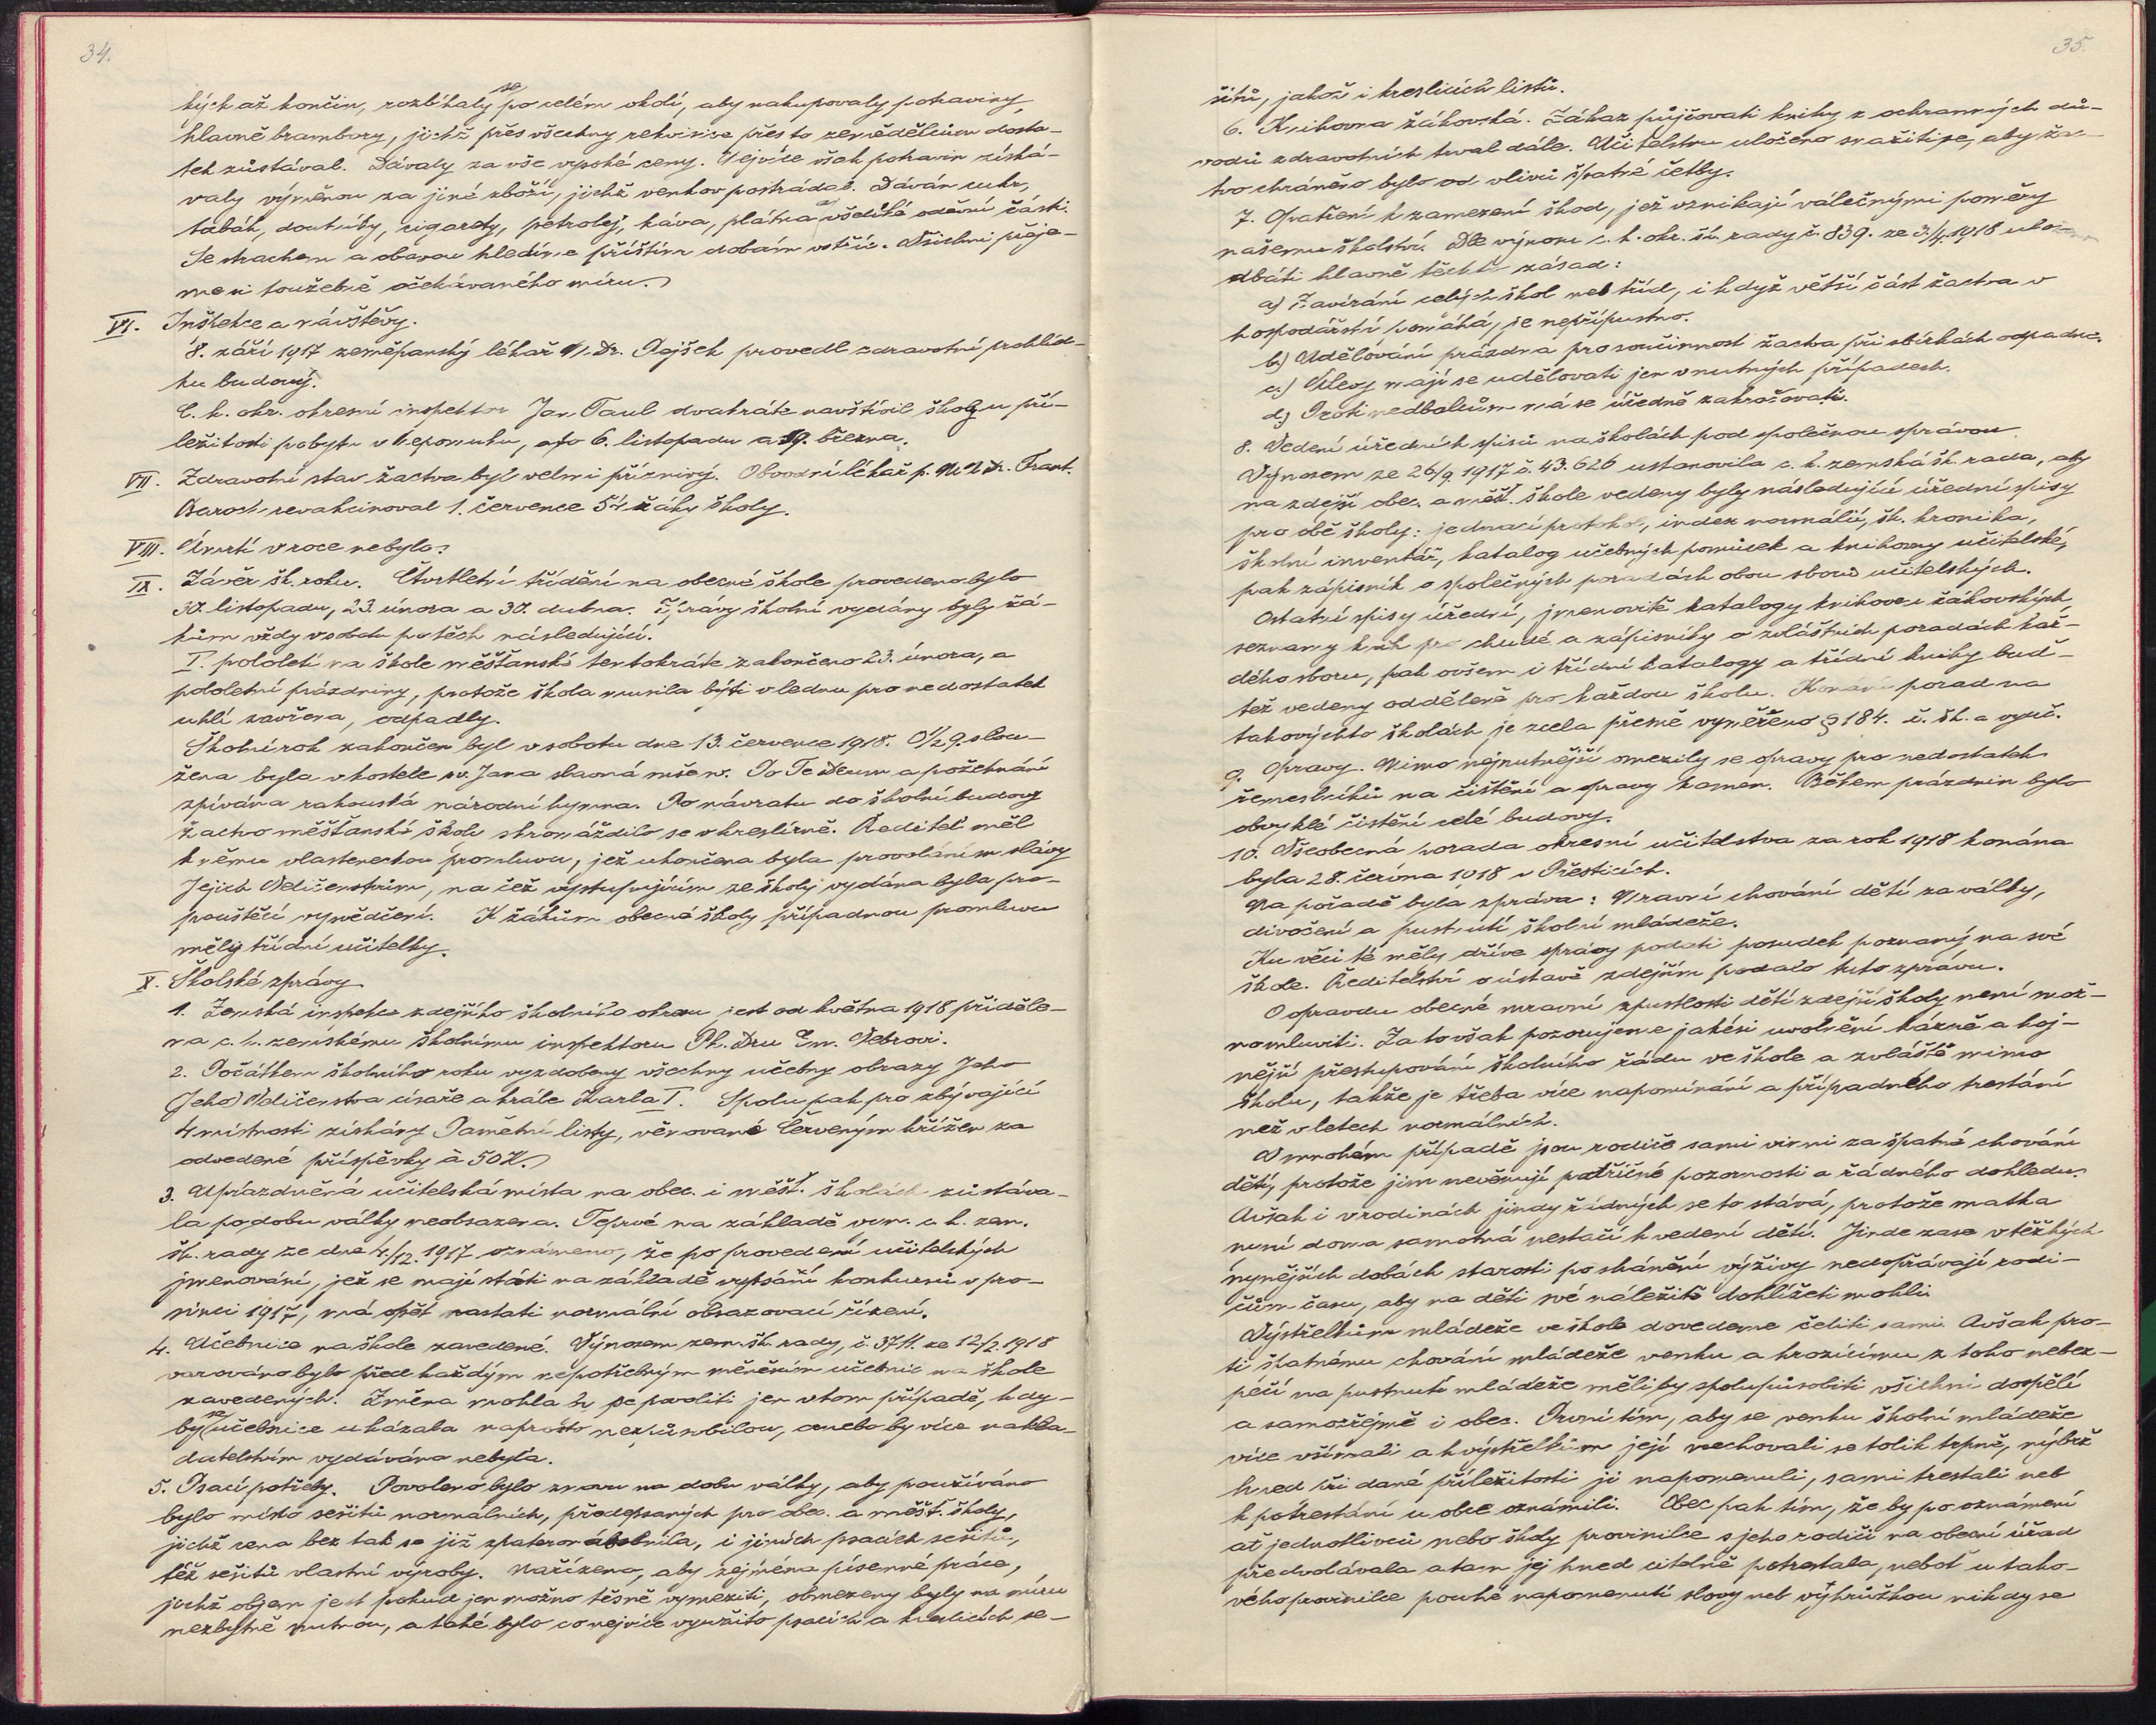 34.
kých až končin, rozbíhaly se po celém okolí, aby nakupovaly potraviny,
hlavně brambory, jichž přes všechny rekvisice přes to zemědělcům dosta-
tek zůstával. Dávaly za vše vysoké ceny. Nejvíce však potravin získá-
valy výměnou za jiné zboží, jichž venkov postrádal. Dáván cukr,
tabák, doutníky, cigarety, petrolej, káva, plátna a všeliké oděvní části.
Se strachem a obavou hledíme příštím dobám vstříc. Všichni přeje-
me si toužebně očekávaného míru.
VI. Inspekce a návštěvy.
8. září 1917 zeměpanský lékař M. Dr. Pajšek provedl zdravotní prohlíd-
ku budovy.
C. k. okr. okresní inspektor Jan Taul dvakráte navštívil školy u pří-
ležitosti pobytu v Nepomuku, a to 6. listopadu a 19. března.
VII. Zdravotní stav žactva byl velmi příznivý. Obvodní lékař p. MUDr. Frant.
Baroch revakcinoval 1. července 54 žáky školy.
VIII. Úmrtí v roce nebylo.
IX. Závěr šk. roku. Čtvrtletní třídění na obecné škole provedeno bylo
30. listopadu, 23. února a 30. dubna. Zprávy školní vydány byly žá-
kům vždy v sobotu po těch následující.
I. pololetí na škole měšťanské tentokráte zakončeno 23. února, a
pololetní prázdniny, protože škola musila býti v lednu pro nedostatek
uhlí zavřena, odpadly.
Školní rok zakončen byl v sobotu dne 13. července 1918. O ½ 9. slou-
žena byla v kostele sv. Jana slavná mše sv. Po Te Deum a požehnání
zpívána rakouská národní hymna. Po návratu do školní budovy
žactvo měšťanské školy shromáždilo se v kreslírně. Ředitel měl
k němu vlasteneckou promluvu, jež ukončena byla provoláním slávy
Jejich Veličenstvům, na čež vystupujícím ze školy vydána byla pro-
pouštěcí vysvědčení. K žákům obecné školy případnou promluvu
měly třídní učitelky.
X. Školské zprávy
1. Zemská inspekce zdejšího školního okresu jest od května 1918 přiděle-
na c. k. zemskému školnímu inspektoru Ph. Dru Em. Webrovi.
2. Počátkem školního roku vyzdobeny všechny učebny obrazy Jeho
(Jeho) Veličenstva císaře a krále Karla I. Spolu pak pro zbývající
4 místnosti získány Pamětní listy, věnované Červeným křížem za
odvedené příspěvky à 50 K.
3. Uprázdněná učitelská místa na obec. i měšť. školách zůstáva-
la po dobu války neobsazena. Teprve na základě vyn. c. k. zem.
šk. rady ze dne 4./12. 1917 oznámeno, že po provedení učitelských
jmenování, jež se mají státi na základě vypsání konkursů v pro-
sinci 1917, má opět nastati normální obsazovací řízení.
4. Učebnice na škole zavedené. Výnosem zem. šk. rady, č. 3711. ze 12/2. 1918
varováno bylo před každým nepotřebným měněním učebnic na škole
zavedených. Změna mohla by se povoliti jen v tom případě, kdy-
by se učebnice ukázala naprosto nezpůsobilou, anebo by více nakla-
datelstvím vydávána nebyla.
5. Psací potřeby. Povoleno bylo znovu na dobu války, aby používáno
bylo místo sešitů normálních, předepsaných pro obec. a měšť. školy,
jichž cena bez tak se již zpateronásobnila, i jiných psacích sešitů,
též sešitů vlastní výroby. Nařízeno, aby zejména písemné práce,
jichž objem jest pokud jen možno těsně vymeziti, obmezeny byly na míru
nezbytně nutnou, a také bylo co nejvíce využito psacích a kreslicích se-
35.
šitů, jakož i kreslicích listů.
6. Knihovna žákovská. Zákaz půjčovati knihy z ochranných dů-
vodů zdravotních trval dále. Učitelstvu uloženo snažiti se, aby žac-
tvo chráněno bylo od vlivů špatné četby.
7. Opatření k zamezení škod, jež vznikají válečnými poměry
našemu školství. Dle výnosu c. k. okr. šk. rady č. 839. ze 3./4. 1918 uloženo
dbáti hlavně těchto zásad:
a) Zavírání celých škol neb tříd, i když větší část žactva v
hospodářství pomáhá, je nepřípustno.
b) Udělování prázdna pro součinnost žactva při sbírkách odpadá.
c) Úlevy mají se udělovati jen v nutných případech.
d) Proti nedbalcům má se úředně zakročovati.
8. Vedení úředních spisů na školách pod společnou správou.
Výnosem ze 26/9. 1917 č. 43.626 ustanovila c. k. zemská šk. rada, aby
na zdejší obec. a měšť. škole vedeny byly následující úřední spisy
pro obě školy: jednací protokol, index normálií, šk. kronika,
školní inventář, katalog učebných pomůcek a knihovny učitelské,
pak zápisník o společných poradách obou sborů učitelských.
Ostatní spisy úřední, jmenovitě katalogy knihoven žákovských
seznamy knih pro chudé a zápisníky o zvláštních poradách kaž-
dého sboru, pak ovšem i třídní katalogy a třídní knihy bud-
tež vedeny odděleně pro každou školu. Konání porad na
takovýchto školách je zcela přesně vyměřeno § 184. ř. šk. a vyuč.
9. Opravy. Mimo nejnutnější omezily se opravy pro nedostatek
řemeslníků na čištění a opravy kamen. Během prázdnin bylo
obvyklé čistění celé budovy.
10. Všeobecná porada okresní učitelstva za rok 1918 konána
byla 28. června 1918 v Přešticích.
Na pořadě byla zpráva: Mravní chování dětí za války,
divočení a pustnutí školní mládeže.
Ku věci té měly dříve správy podati posudek poznaný na své
škole. Ředitelství o ústavě zdejším podalo tuto zprávu.
O opravdu obecné mravní zpustlosti dětí zdejší školy není mož-
no mluviti. Za to však pozorujeme jakési uvolnění kázně a hoj-
nější přestupování školního řádu ve škole a zvláště mimo
školu, takže je třeba více napomínání a případného trestání
než v letech normálních.
V mnohém případě jsou rodiče sami vinni za špatné chování
dětí, protože jim nevěnují patřičné pozornosti a řádného dohledu.
Avšak i v rodinách jindy řádných se to stává, protože matka
nyní doma samotná nestačí k vedení dětí. Jinde zase v těžkých
nynějších dobách starosti po shánění výživy nedopřávají rodi-
čům času, aby na děti své náležitě dohlížeti mohli.
Výstřelkům mládeže ve škole dovedeme čeliti sami. Avšak pro-
ti špatnému chování mládeže venku a hrozícímu z toho nebez-
pečí na pustnutí mládeže měli by spolupůsobiti všichni dospělí
a samozřejmě i obec. První tím, aby se venku školní mládeže
více všímali a k výstřelkům její nechovali se tolik trpně, nýbrž
hned při dané příležitosti ji napomenuli, sami trestali neb
k potrestání u obce oznámili. Obec pak tím, že by po oznámení
ať jednotlivců nebo školy provinilce s jeho rodiči na obecní úřad
předvolávala a tam jej hned citelně potrestala, neboť u tako-
vého provinilce pouhé napomenutí slovy neb výhrůžkou nikdy se